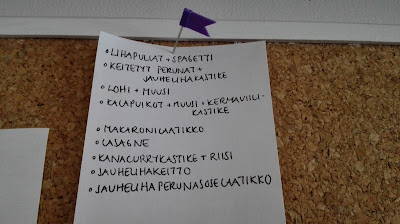 • LIHAPULLAT + SPAGETTI
• KEITETYT PERUNAT +
JAUHELIHAKASTIKE
• LOHI + MUUSI
• KALAPUIKOT + MUUSI + KERMAVIILI-
KASTIKE
• MAKARONILAATIKKO
• LASAGNE
• KANACURRYKASTIKE + RIISI
• JAUHELIHAKEITTO
• JAUHELIHAPERUNASOSELAATIKKO